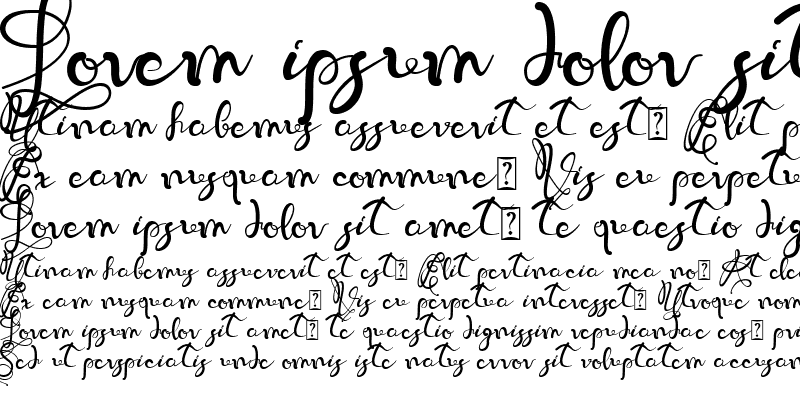 Lorem ipsum dolor sit
Utinam habemus assueverit et est Elit p
Ex eam nusquam commune Vis eu perpetu
Lorem ipsum dolor sit amet te quaestio dig
Utinam habemus assueverit et est Elit pertinacia mea no At elea
Ex eam nusquam commune Vis eu perpetua interesset Utroque nom
Lorem ipsum dolor sit amet te quaestio dignissim repudiandae eos pri
Sed ut perspiciatis unde omnis iste natus error sit voluptatem accusan